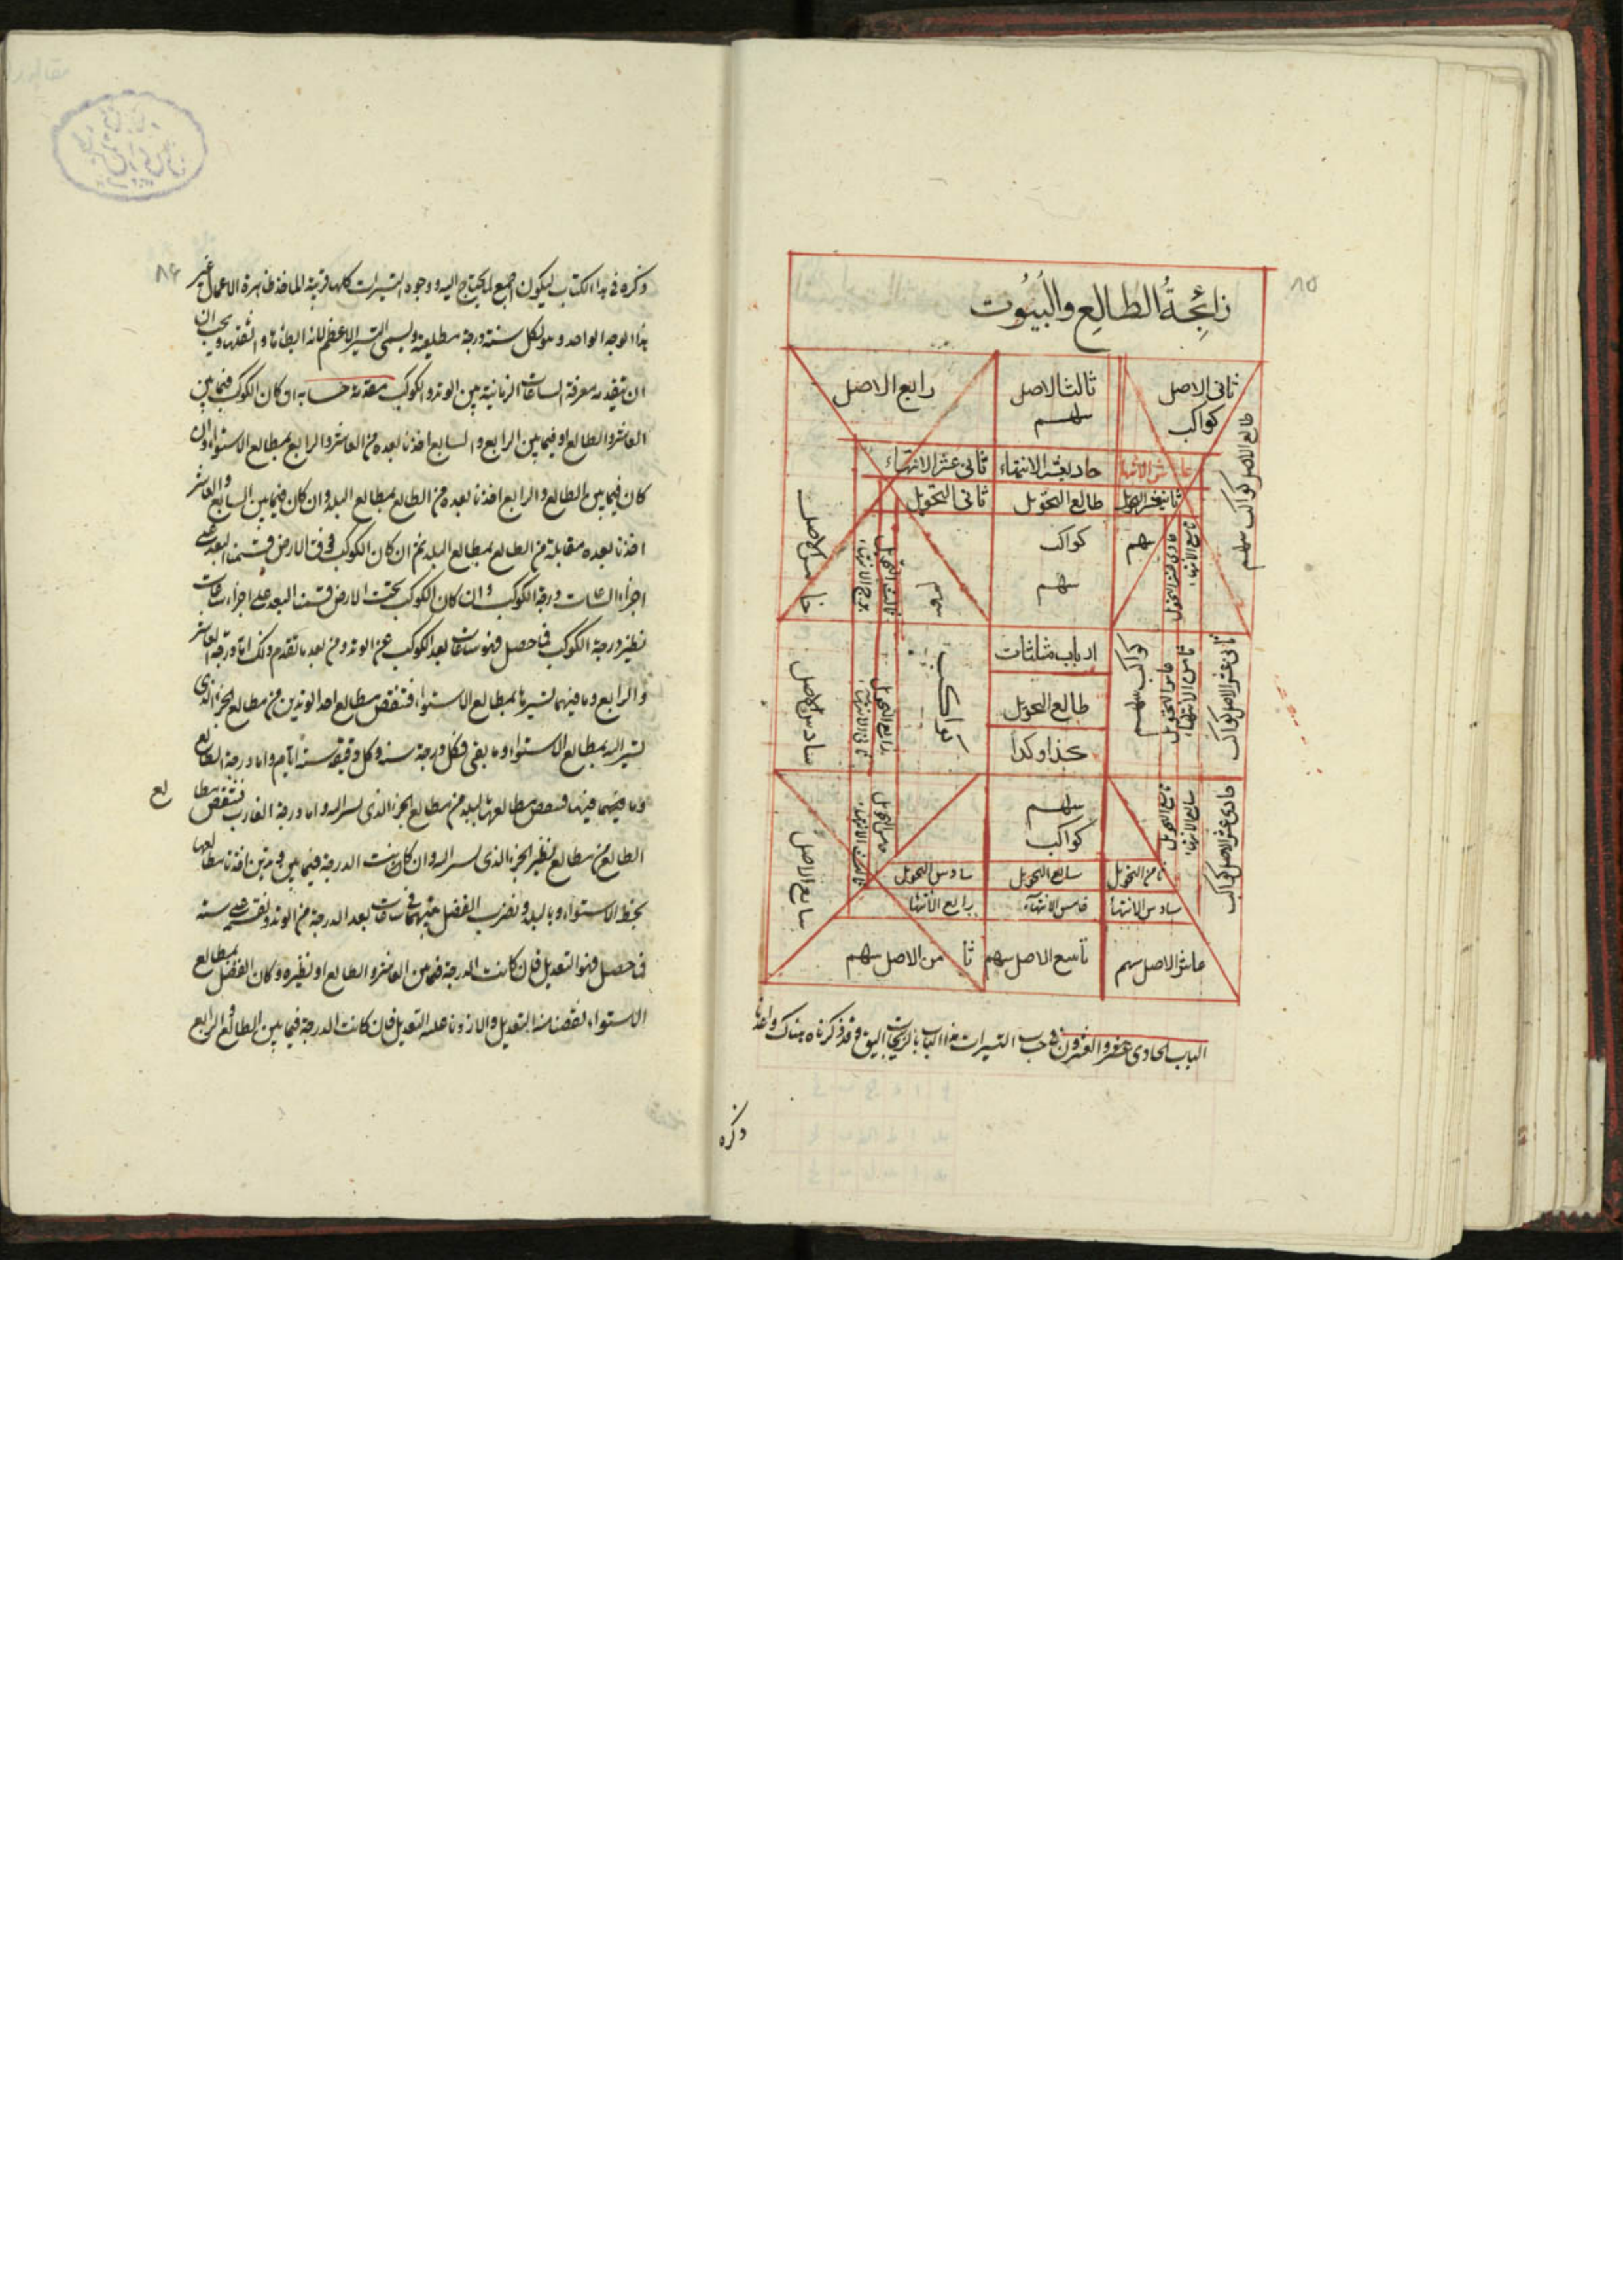 زائجة الطالع والبيوت
ثانى الاصل
كواكب
ثالث الاصل
سهم
رابع الاصل
طالع الاصل كواكب سهم
عاشر الانتهاء
حادى عشر الانتهاء
ثانى عشر الانتهاء
ثانى عشر التحويل
طالع التحويل
ثانى التحويل
تاسع الانتهاء
حادى عشر التحويل
سهم
كواكب
سهم
سهم
ثالث التحويل
خامس الاصل
ثانى عشر الاصل كواكب
ثامن الانتهاء
عاشر التحويل
كواكب سهم
ارباب مثلثات
طالع التحويل
كذا وكذا
كواكب
رابع التحويل
سادس الاصل
حادى عشر الاصل كواكب
سابع الانتهاء
تاسع التحويل
سهم
كواكب
سابع الاصل
ثامن التحويل
سابع التحويل
سادس التحويل
سادس الانتهاء
خامس الانتهاء
رابع الانتهاء
عاشر الاصل سهم
تاسع الاصل سهم
ثامن الاصل سهم
الباب الحادى عشر والعشرون فى حساب التسييرات هذا الباب بالزيجات اليق وقد ذكرناه هناك واعدنا
ذكره
٨٥
٨٦
ذكره فى هذا الكتاب ليكون اجمع لما يحتاج اليه ووجوه التسييرات كلها قريبة الماخذ ظاهرة الاعمال غير
هذا الوجه الواحد وهو لكل سنة درجة مطلعية ويسمى التسيير الاعظم لانه ابطاها و اثقلها ويجب ان
ان يتقدمه معرفة الساعات الزمانية بين الوتد والكوكب مقدمة حسابه ان كان الكوكب فيما بين
العاشر والطالع او فيما بين الرابع والسابع اخذنا بعده من العاشر والرابع بمطالع الاستواء وان
كان فيما بين الطالع والرابع اخذنا بعده من الطالع بمطالع البلد وان كان فيما بين السابع والعاشر
اخذنا بعده مقابلة من الطالع بمطالع البلد ثم ان كان الكوكب فوق الارض قسمنا البعد على
اجزاء الساعات درجة الكوكب وان كان الكوكب تحت الارض قسمنا البعد على اجزاء ساعات
نظير درجة الكوكب فما حصل فهو ساعات بعد الكوكب عن الوتد ومن بعد ما تقدم ذلك اما درجة العاشر
والرابع وما فيهما تسييرها بمطالع الاستواء فتنقص مطالع احد الوتدين من مطالع الجزء الذى
تسير اليه بمطالع الاستواء وما بقى فكل درجة سنة وكل دقيقة ستة ايام واما درجة الطالع
وما فيهما فينقص مطالعها بالبلد من مطالع الجزء الذى تسير اليه واما درجة الغارب فتنقص مطا
لع
الطالع من مطالع نظير الجزء الذى تسير اليه وان كانت الدرجة فيما بين وتدين اخذنا مطالعها
بخط الاستواء وبالبلد ونضرب الفضل بينهما فى ساعات بعد الدرجة من الوتد ونقسمه على ستة
فما حصل فهو التعديل فان كانت الدرجة فيما بين العاشر والطالع او نظيره وكان الفضل لمطالع
الاستواء نقصنا منه التعديل والا زدنا عليه التعديل فان كانت الدرجة فيما بين الطالع والرابع